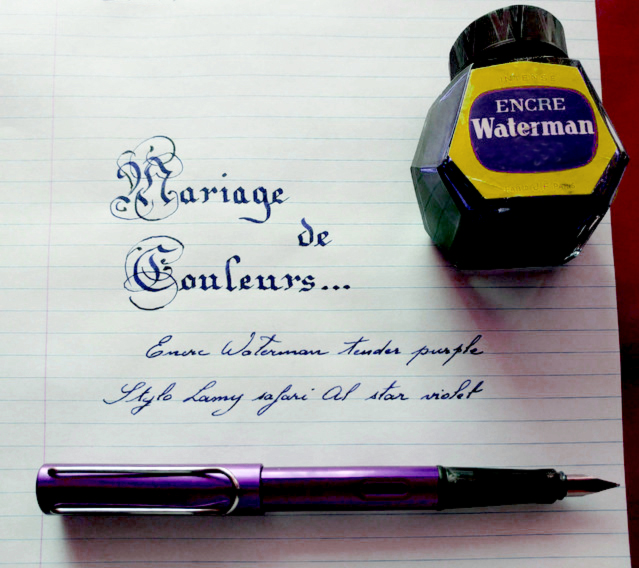 ENCRE
Waterman
Mariage
de
Couleurs...
Encre Waterman tender purple
Stylo Lamy safari Al star violet